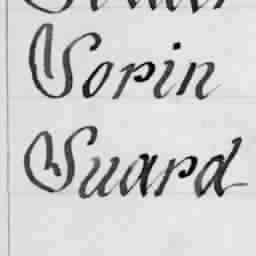 Sorin
Suard